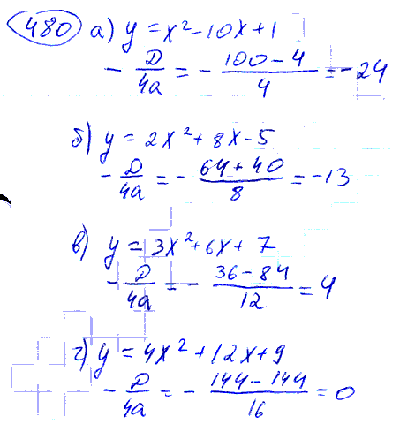 480 а) y = x² - 10x + 1
- D/4a = - (100 - 4)/4 = -24
б) y = 2x² + 8x - 5
- D/4a = - (64 + 40)/8 = -13
в) y = 3x² + 6x + 7
- D/4a = - (36 - 84)/12 = 4
г) y = 4x² + 12x + 9
- D/4a = - (144 - 144)/16 = 0